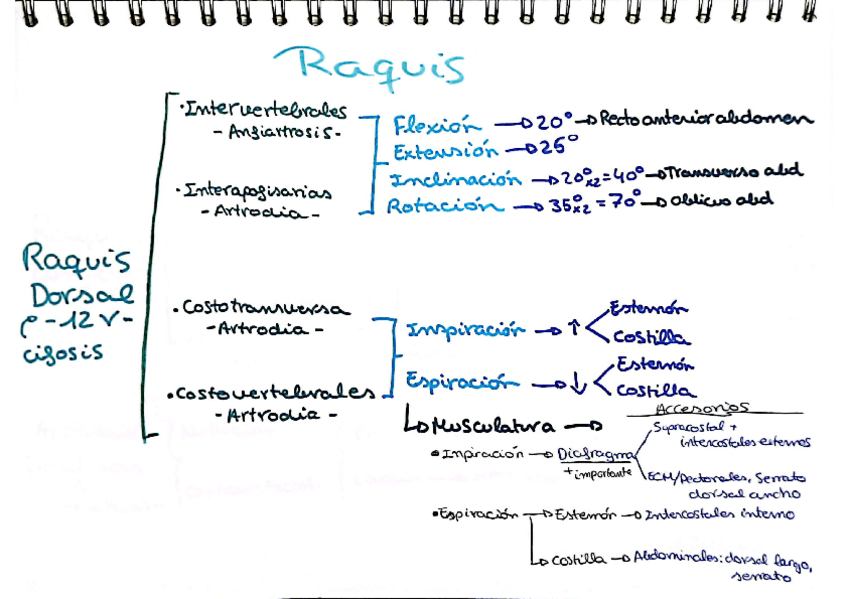 Raquis
Raquis
Dorsal
-12 V-
cifosis
· Intervertebrales
- Anfiartrosis -
· Interapofisarias
- Artrodia -
Flexión → 20° → Recto anterior abdomen
Extensión → 25°
Inclinación → 20°x2 = 40° → Transverso abd
Rotación → 35°x2 = 70° → Oblicuo abd
· Costotransversa
- Artrodia -
· Costovertebrales
- Artrodia -
Inspiración → ↑
Esternón
Costilla
Espiración → ↓
Esternón
Costilla
↳ Musculatura →
Accesorios
· Inpiración → Diafragma
+ importante
Supracostal +
intercostales externos
ECM/Pectorales, Serrato
dorsal ancho
· Espiración → Esternón → Intercostales interno
↳ Costilla → Abdominales: dorsal largo,
serrato